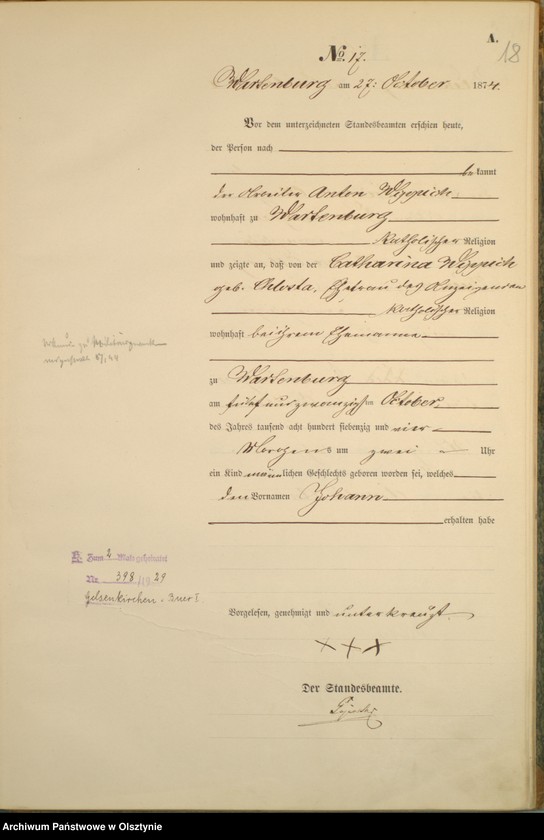 A.
18
No. 17.
Wartenburg am 27. October 1874.
Vor dem unterzeichneten Standesbeamten erschien heute,
der Person nach
bekannt
der Arbeiter Anton
wohnhaft zu Wartenburg
katholischer Religion
und zeigte an, daß von der Catharina
geb. Ehefrau des Anzeigenden
katholischer Religion
wohnhaft bei ihrem Ehemanne
zu Wartenburg
am fünf und zwanzigsten October
des Jahres tausend acht hundert siebenzig und vier
Morgens um zwei Uhr
ein Kind männlichen Geschlechts geboren worden sei, welches
den Vornamen Johann
erhalten habe
B. Zum 2 Mal geheiratet
Nr. 398/1929
Gelsenkirchen-Buer I.
Vorgelesen, genehmigt und unterkreuzt.
+++
Der Standesbeamte.
Archiwum Państwowe w Olsztynie